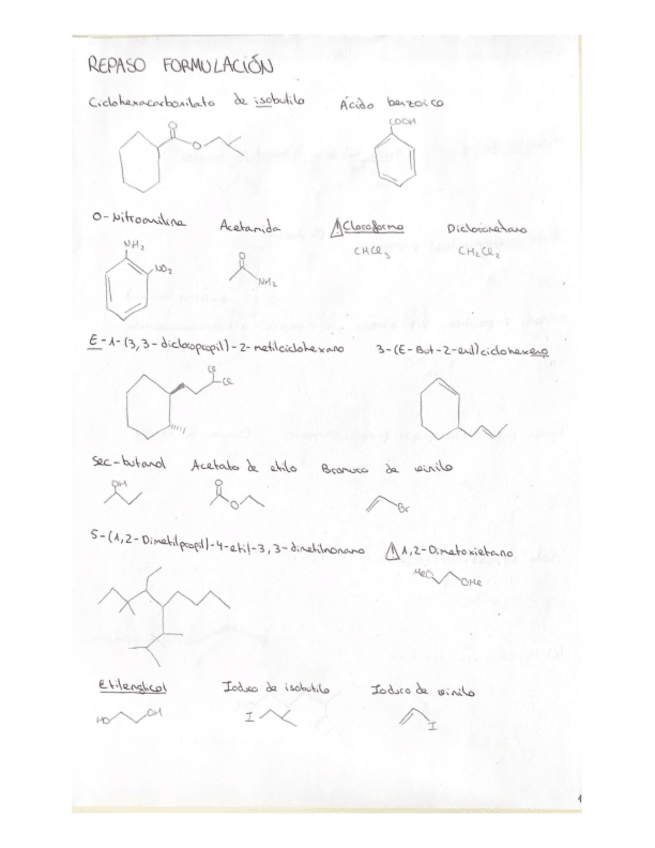 REPASO FORMULACIÓN
Ciclohexacarboxilato de isobutilo Ácido benzoico
O COOH
O
O-Nitroanilina Acetamida ⚠Cloroformo Diclorometano
NH2 O CHCl3 CH2Cl2
NO2 NH2
E-1-(3,3-dicloropropil)-2-metilciclohexano 3-(E-But-2-enil)ciclohexeno
Cl
Cl
Sec-butanol Acetato de etilo Bromuro de vinilo
OH O
O Br
5-(1,2-Dimetilpropil)-4-etil-3,3-dimetilnonano ⚠1,2-Dimetoxietano
MeO OMe
Etilenglicol Ioduro de isobutilo Ioduro de vinilo
HO OH I I
1